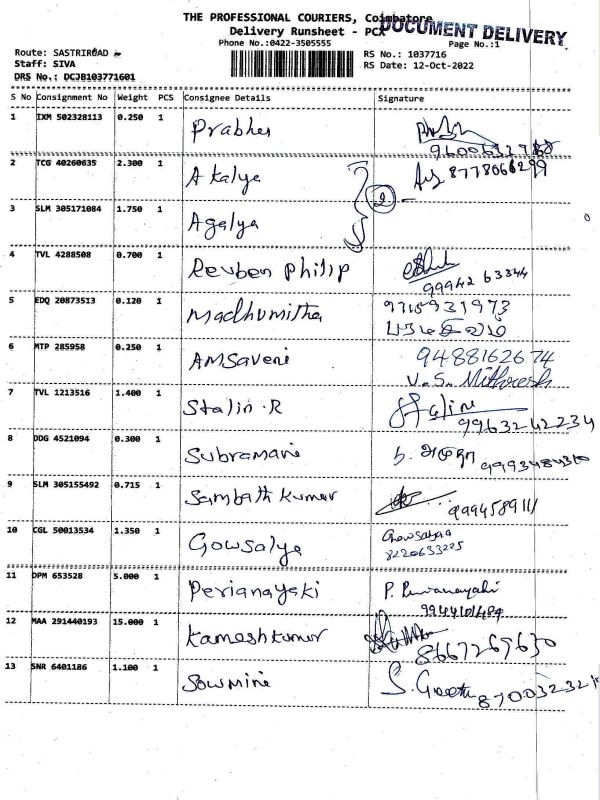 THE PROFESSIONAL COURIERS, Coimbatore
DOCUMENT DELIVERY
Delivery Runsheet - PCX
Phone No.:0422-3505555
Page No.:1
Route: SASTRIROAD
RS No.: 1037716
Staff: SIVA
RS Date: 12-Oct-2022
DRS No.: DCJB103771601
S No Consignment No Weight PCS Consignee Details Signature
1 IXM 502328113 0.250 1 Prabhu
2 TCG 40260635 2.300 1 Akalya 2 8778066299
3 SLM 305171084 1.750 1 Agalya
4 TVL 4288508 0.700 1 Reuben Philip
99942 63344
5 EDQ 20873513 0.120 1 Madhumitha 9715931973
6 MTP 285958 0.250 1 AMSaveni 9488162674
V.S. Mithresh
7 TVL 1213516 1.400 1 Stalin.R Stalin
99632 42234
8 DDG 4521094 0.300 1 Subramani
9 SLM 305155492 0.715 1 Sambath kumar
10 CGL 50013534 1.350 1 Gowsalya Gowsalya
8220633225
11 DPM 653528 5.000 1 Perianayaki
9944101489
12 MAA 291440193 15.000 1 Kameshkumar
8667269630
13 SNR 6401186 1.100 1 Sowmini S. Geetha